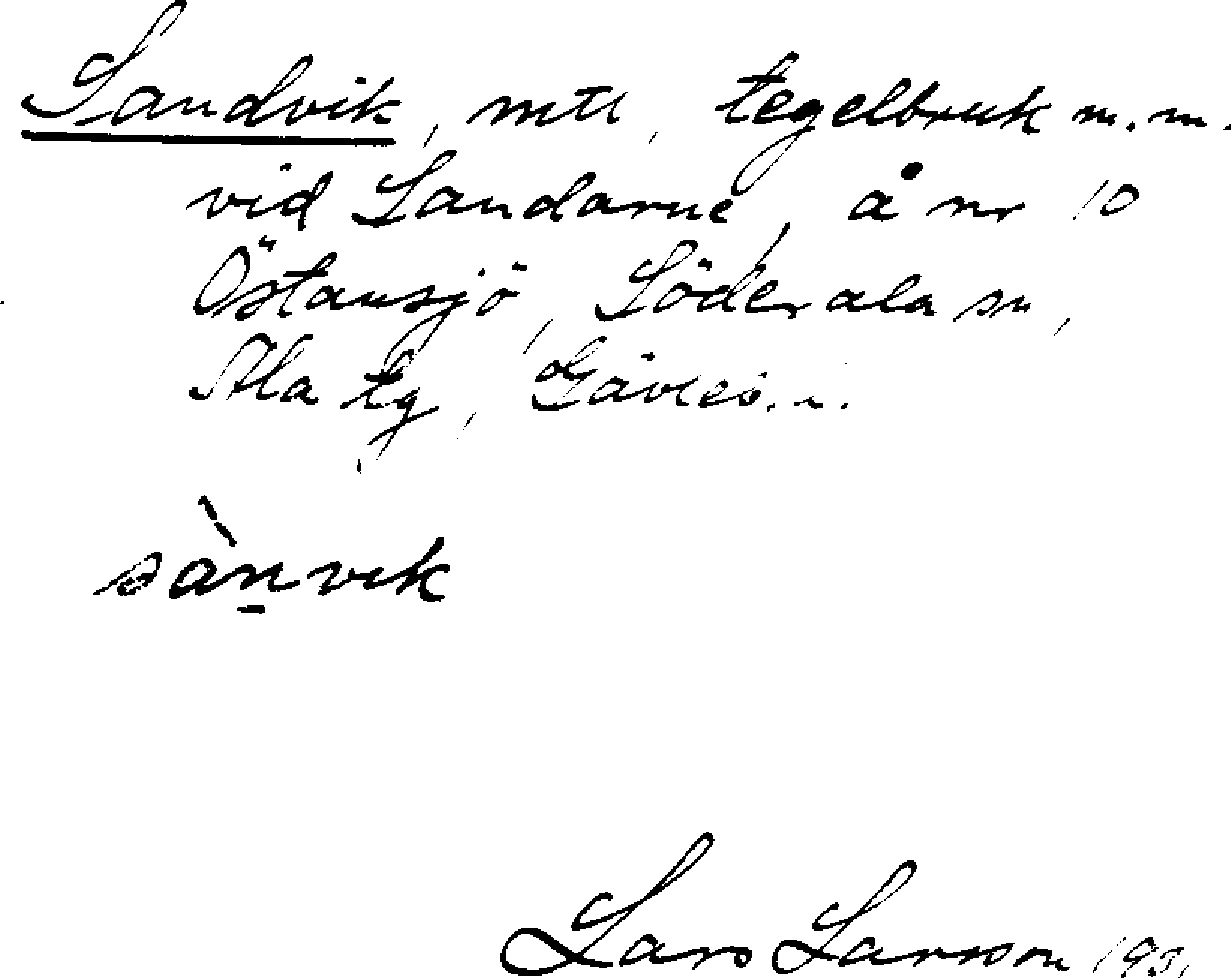 Sandvik, mtl, tegelbruk m.m.
vid Sandarne, å nr 10
Östansjö, Söderala sn,
Ala tg, Gävleb. l.
sànvik
Lars Larsson